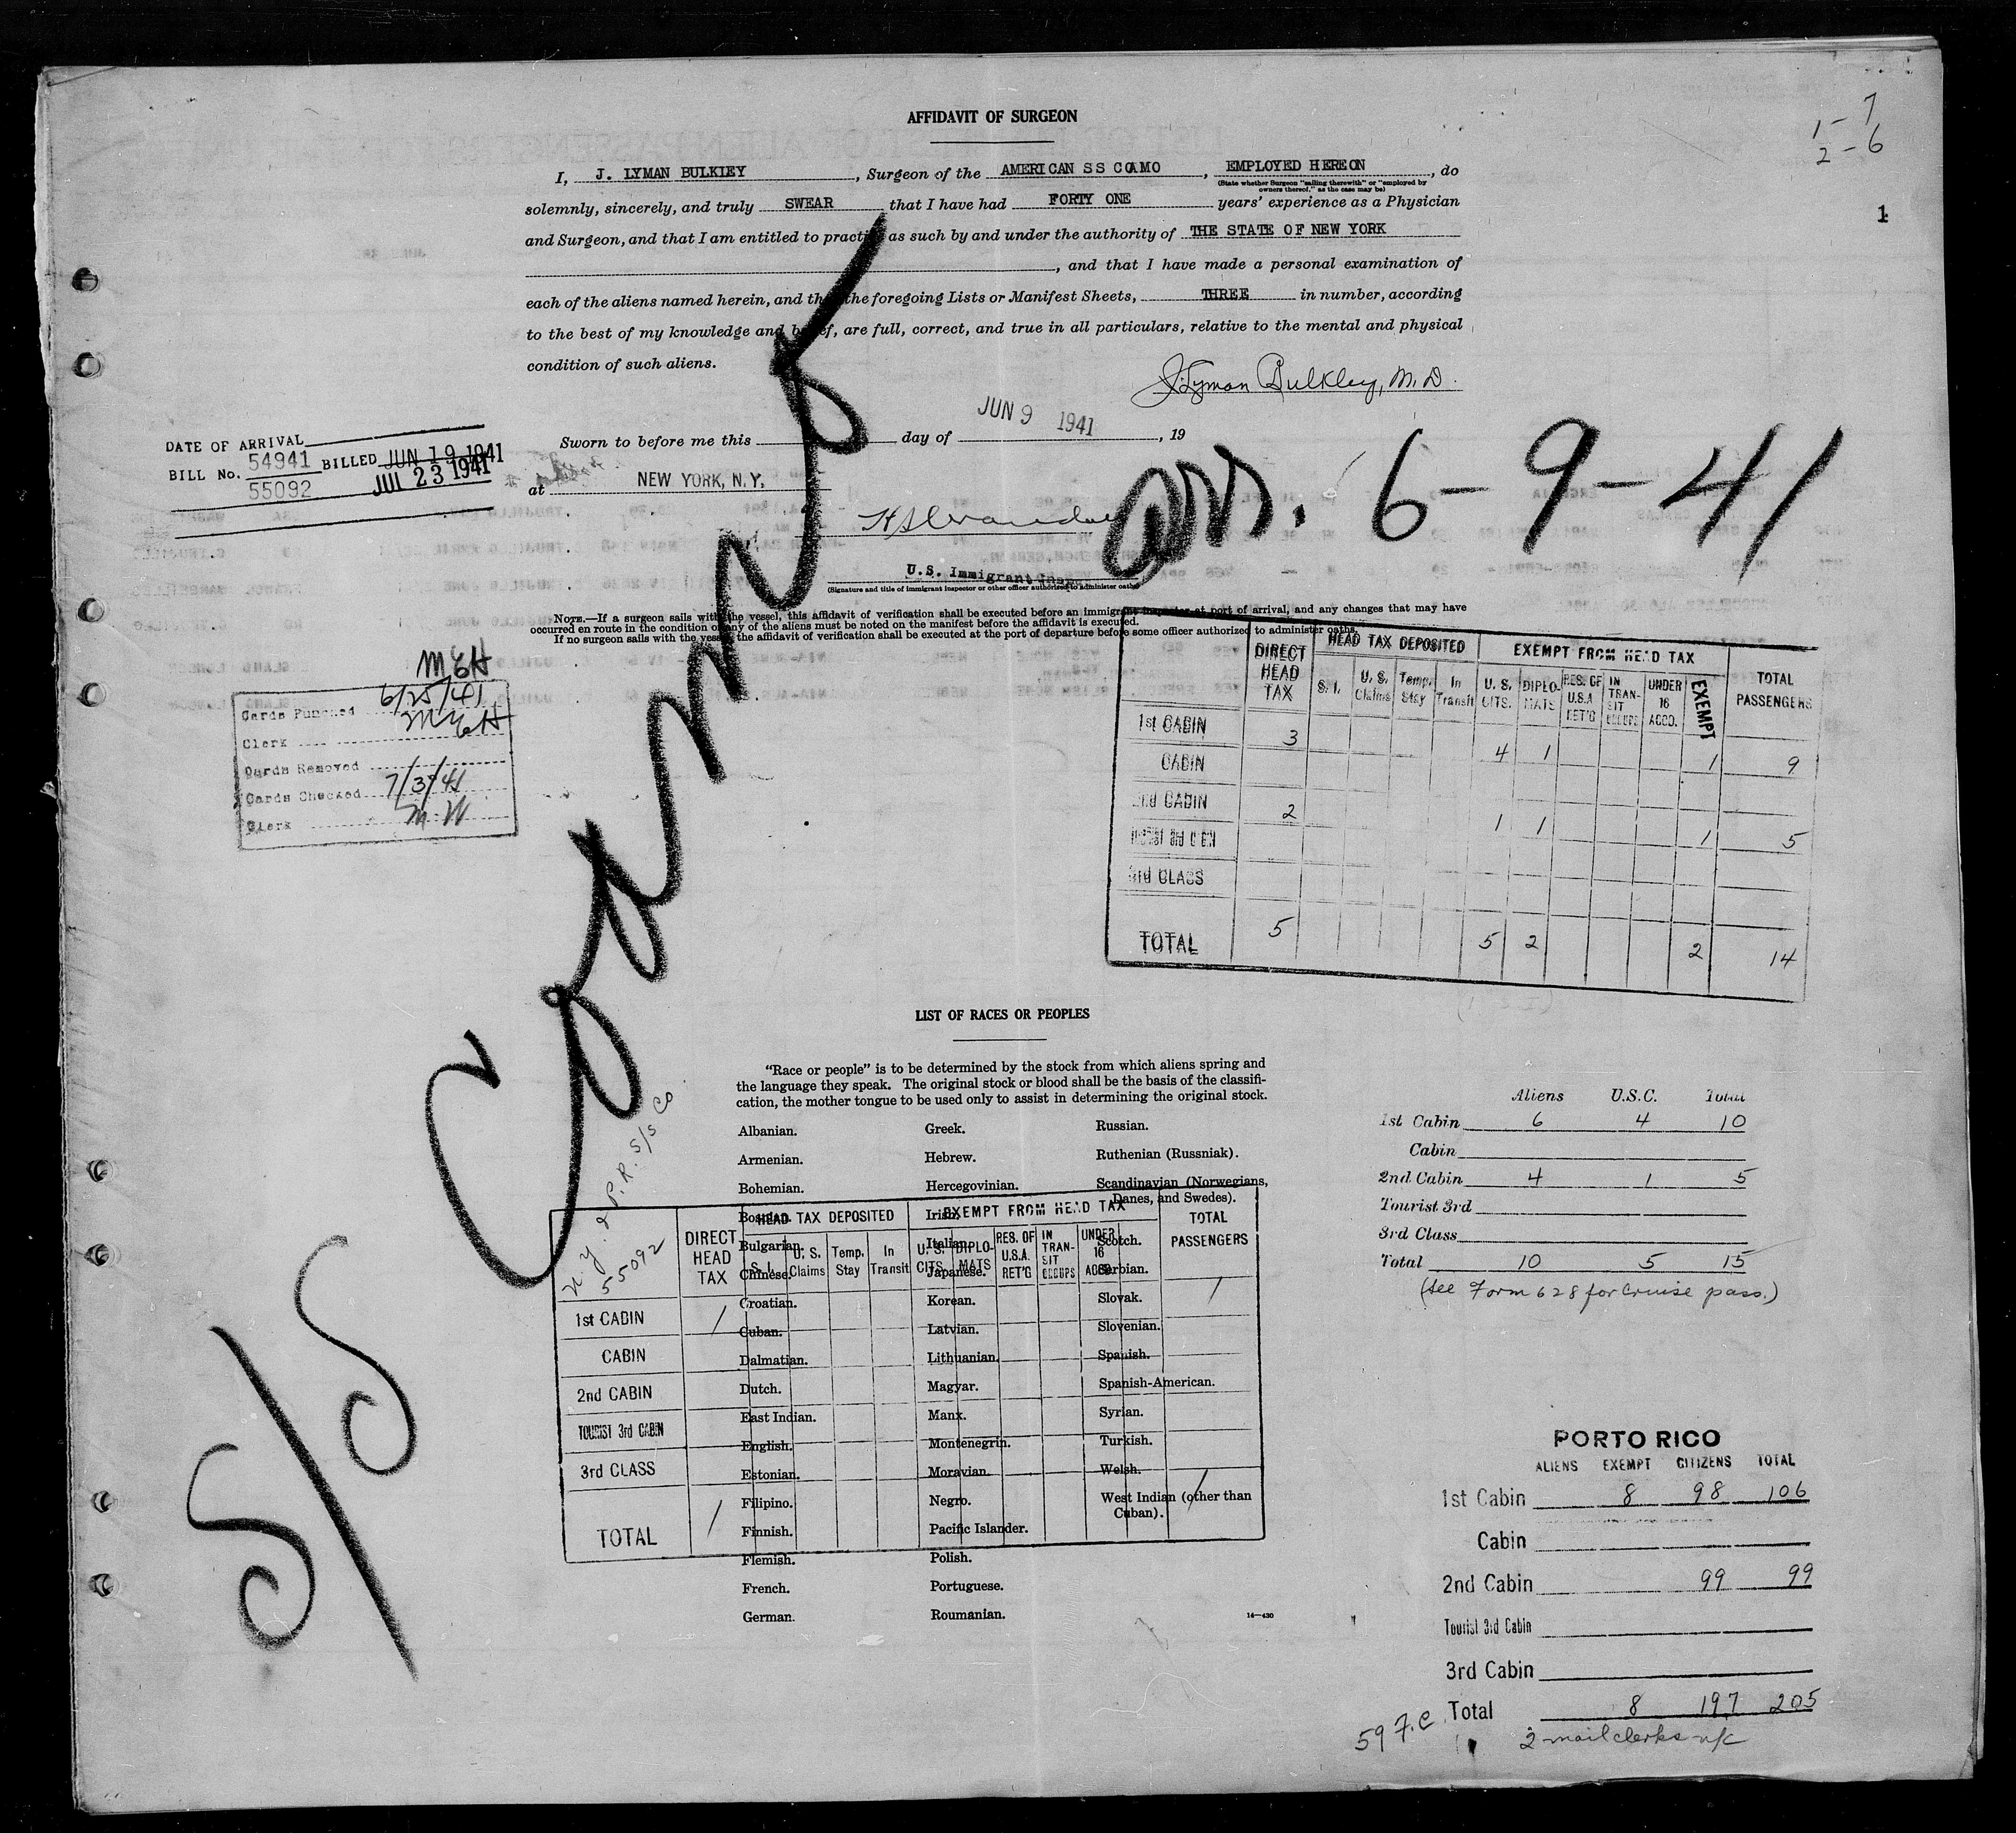 AFFIDAVIT OF SURGEON
1 - 7
2 - 6
1
I, J. LYMAN BULKLEY, Surgeon of the AMERICAN SS COAMO, EMPLOYED HEREON, do
(State whether Surgeon "sailing therewith" or "employed by owners thereof," as the case may be)
solemnly, sincerely, and truly SWEAR that I have had FORTY ONE years' experience as a Physician
and Surgeon, and that I am entitled to practice as such by and under the authority of THE STATE OF NEW YORK
, and that I have made a personal examination of
each of the aliens named herein, and that the foregoing Lists or Manifest Sheets, THREE in number, according
to the best of my knowledge and belief, are full, correct, and true in all particulars, relative to the mental and physical
condition of such aliens.
J. Lyman Bulkley, M.D.
Sworn to before me this day of JUN 9 1941, 19
at NEW YORK, N.Y.
U.S. Immigrant Insp.
(Signature and title of immigrant inspector or other officer authorized to administer oaths)
NOTE.—If a surgeon sails with the vessel, this affidavit of verification shall be executed before an immigrant inspector at port of arrival, and any changes that may have
occurred en route in the condition of any of the aliens must be noted on the manifest before the affidavit is executed.
If no surgeon sails with the vessel, the affidavit of verification shall be executed at the port of departure before some officer authorized to administer oaths.
DATE OF ARRIVAL
BILL No. 54941 BILLED JUN 19 1941
55092 JUL 23 1941
S/S Coamo
arr. 6-9-41
MEH
Cards Punched 6/25/41
Clerk MEH
Cards Removed
Cards Checked 7/3/41
Clerk M W
DIRECT HEAD TAX
HEAD TAX DEPOSITED
EXEMPT FROM HEAD TAX
TOTAL PASSENGERS
S. I. U. S. Claims Temp. Stay In Transit U. S. CITS. DIPLOMATS RES. OF U.S.A. RET'G IN TRANSIT GROUPS UNDER 16 ACCO. EXEMPT
1st CABIN 3 4 1 1 9
CABIN
2nd CABIN 2 1 1 1 5
TOURIST 3rd CABIN
3rd CLASS
TOTAL 5 5 2 2 14
LIST OF RACES OR PEOPLES
"Race or people" is to be determined by the stock from which aliens spring and
the language they speak. The original stock or blood shall be the basis of the classifi-
cation, the mother tongue to be used only to assist in determining the original stock.
Albanian.
Armenian.
Bohemian.
Bosnian.
Bulgarian.
Chinese.
Croatian.
Cuban.
Dalmatian.
Dutch.
East Indian.
English.
Estonian.
Filipino.
Finnish.
Flemish.
French.
German.
Greek.
Hebrew.
Hercegovinian.
Irish.
Italian.
Japanese.
Korean.
Latvian.
Lithuanian.
Magyar.
Manx.
Montenegrin.
Moravian.
Negro.
Pacific Islander.
Polish.
Portuguese.
Roumanian.
Russian.
Ruthenian (Russniak).
Scandinavian (Norwegians,
Danes, and Swedes).
Scotch.
Serbian.
Slovak.
Slovenian.
Spanish.
Spanish-American.
Syrian.
Turkish.
Welsh.
West Indian (other than
Cuban).
14—430
N. Y. & P. R. S/S Co
55092
DIRECT HEAD TAX
HEAD TAX DEPOSITED
EXEMPT FROM HEAD TAX
TOTAL PASSENGERS
S. I. U. S. Claims Temp. Stay In Transit U. S. CITS. DIPLOMATS RES. OF U.S.A. RET'G IN TRANSIT GROUPS UNDER 16 ACCO.
1st CABIN 1 1
CABIN
2nd CABIN
TOURIST 3rd CABIN
3rd CLASS
TOTAL 1 1
Aliens U.S.C. Total
1st Cabin 6 4 10
Cabin
2nd Cabin 4 1 5
Tourist 3rd
3rd Class
Total 10 5 15
(See Form 628 for Cruise pass.)
PORTO RICO
ALIENS EXEMPT CITIZENS TOTAL
1st Cabin 8 98 106
Cabin
2nd Cabin 99 99
Tourist 3rd Cabin
3rd Cabin
Total 8 197 205
597.C
2 mail clerks n/c